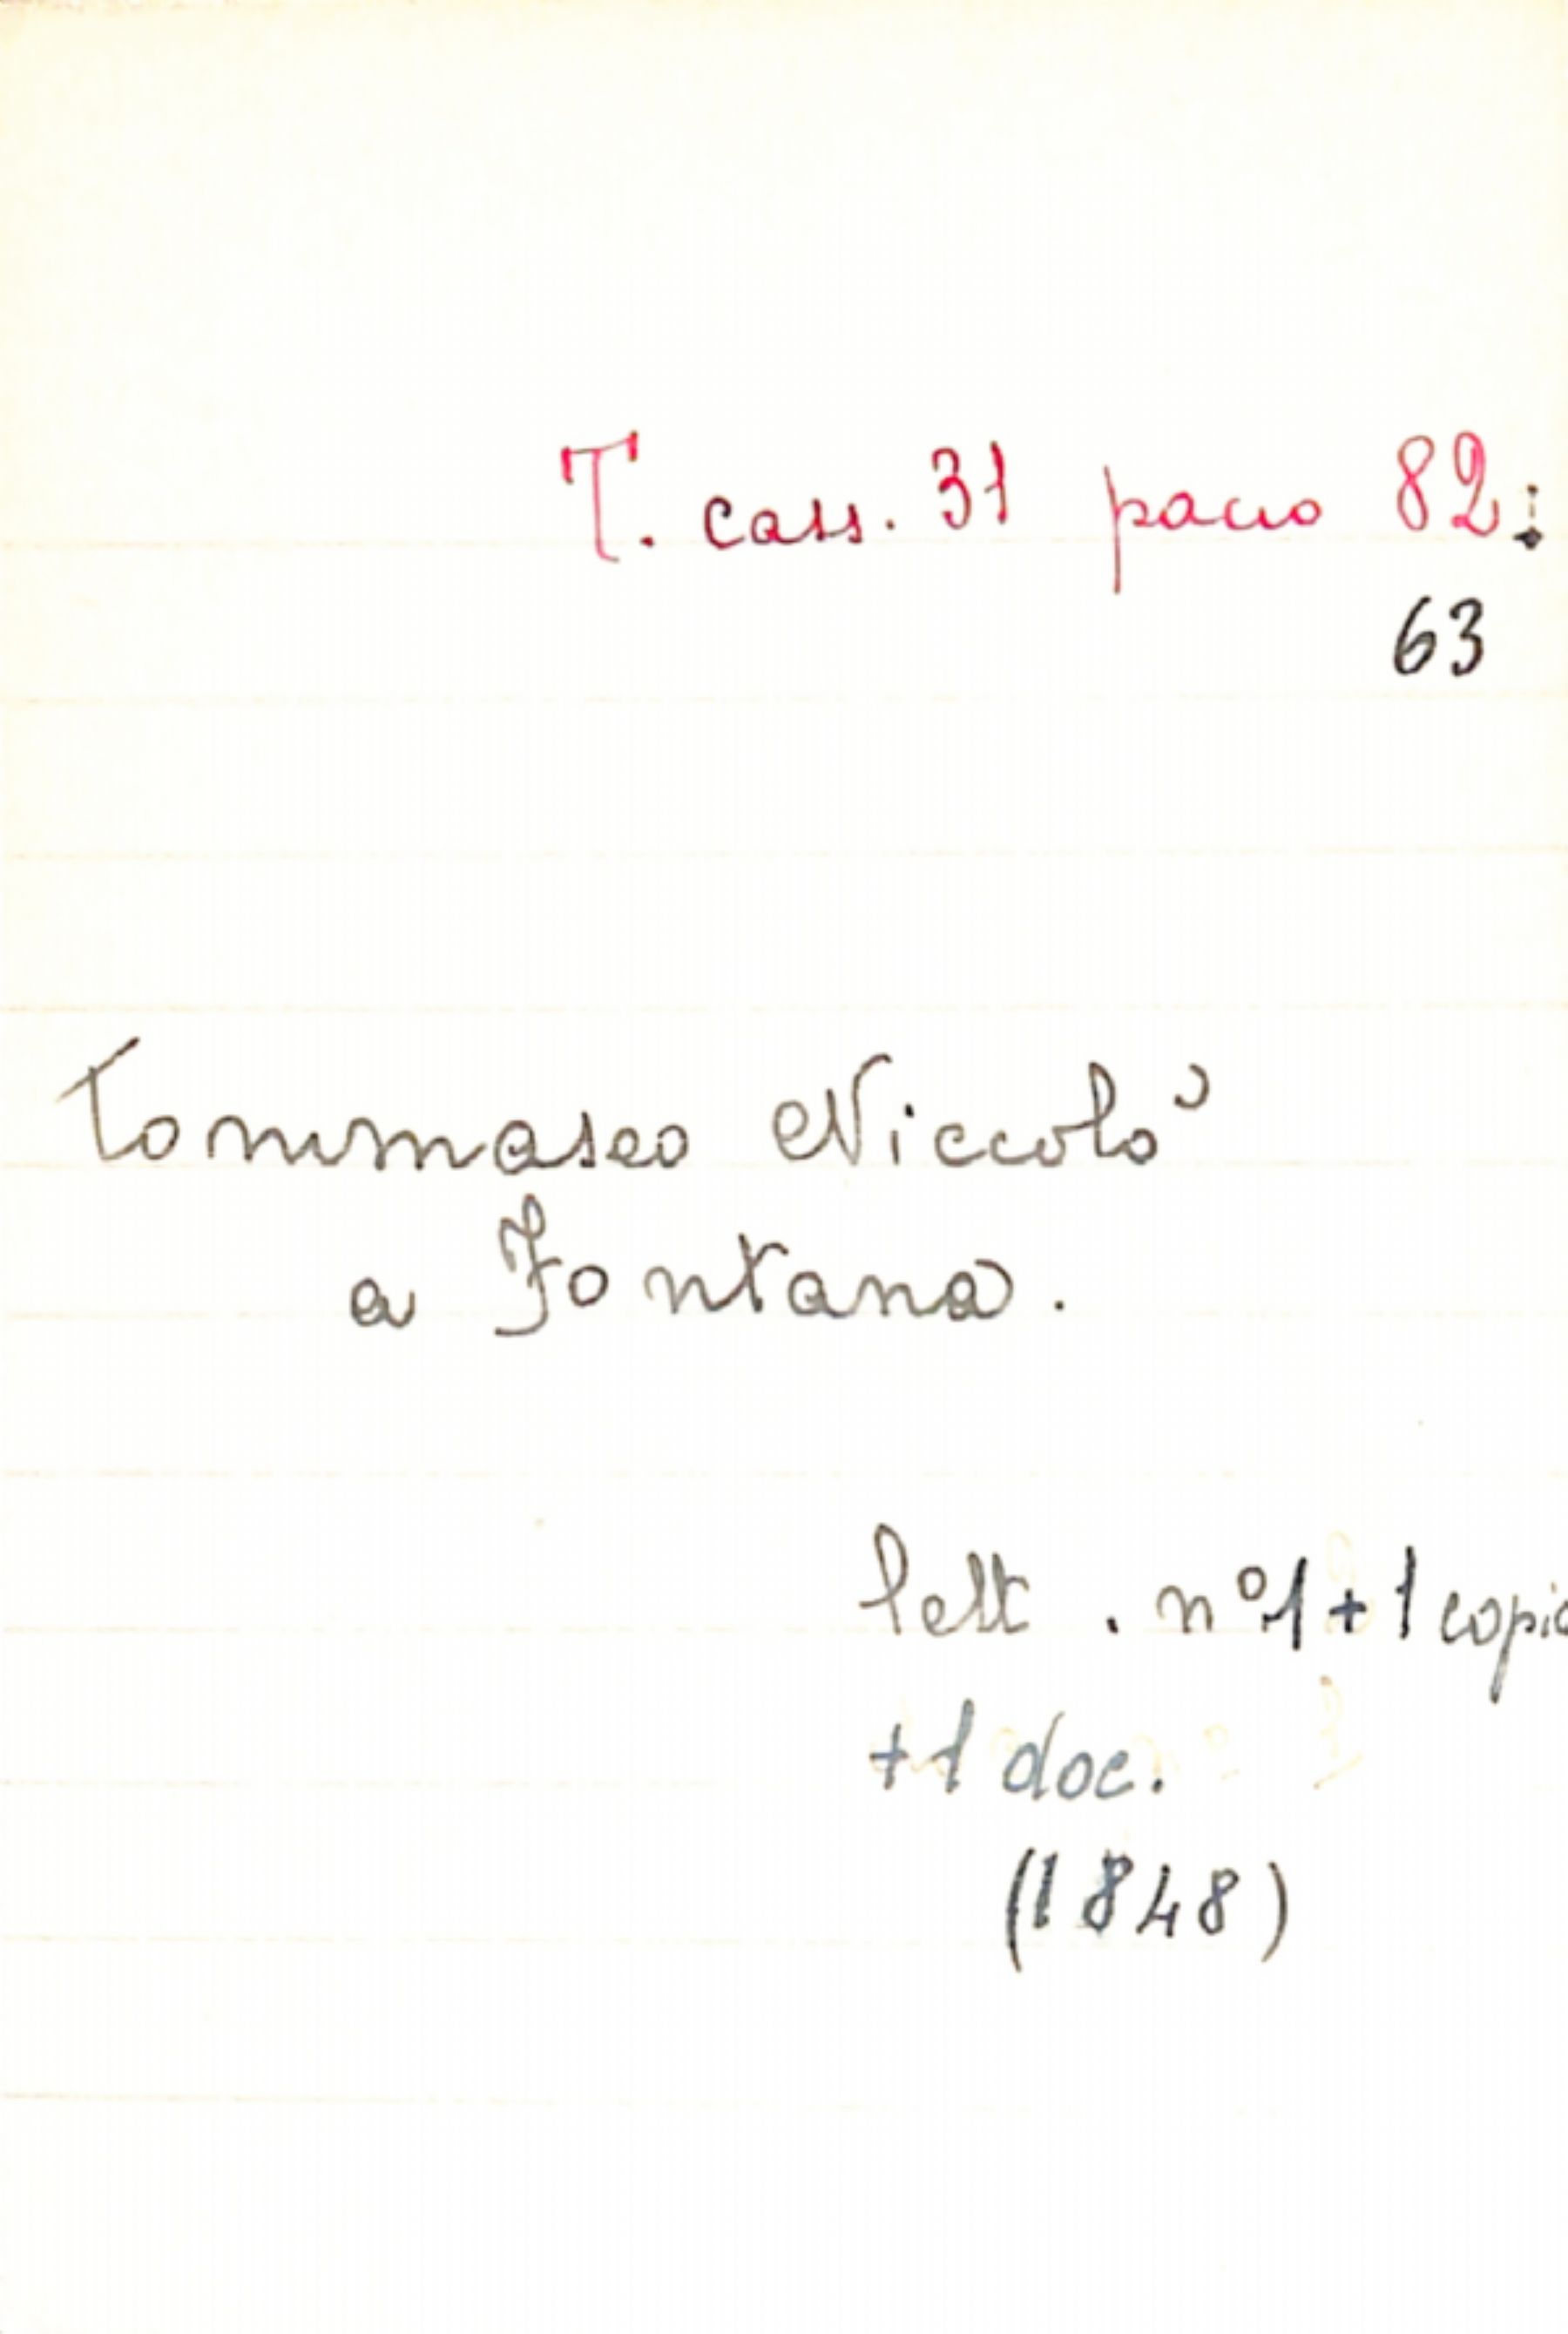 T. cass. 31 pacco 82:
63
Tommaseo Niccolò
a Fontana.
lett. n° 1 + 1 copia
+ 1 doc.
(1848)